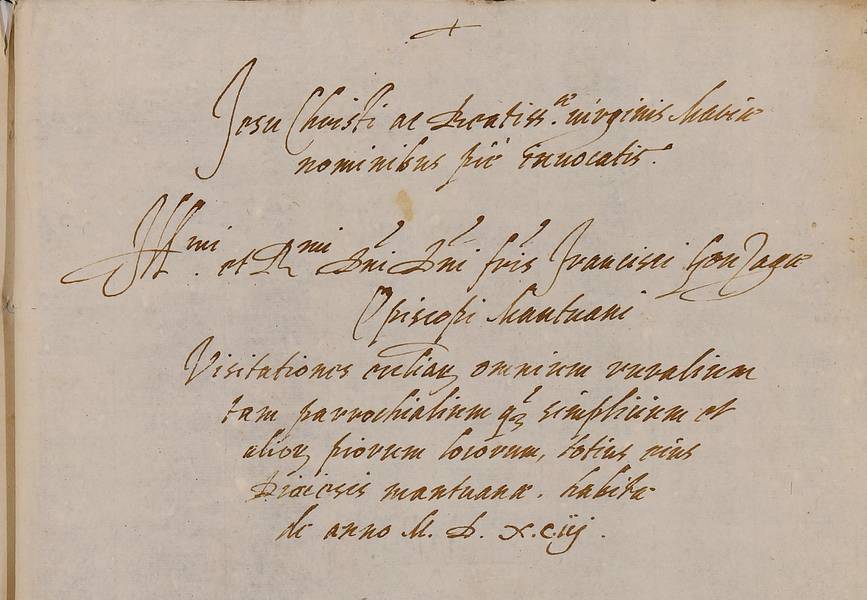 +
Jesu Christi ac Beatiss.æ virginis Mariæ
nominibus piè invocatis.
Ill.mi et R.mi Dñi Dñi fris Francisci Gonzagæ
Episcopi Mantuani
Visitationes eccliaꝝ omnium ruralium
tam parrochialium qꝫ simplicium et
alioꝝ piorum locorum, totius eius
Diocesis mantuanæ. habitæ
de anno M. D. X.C.iij.